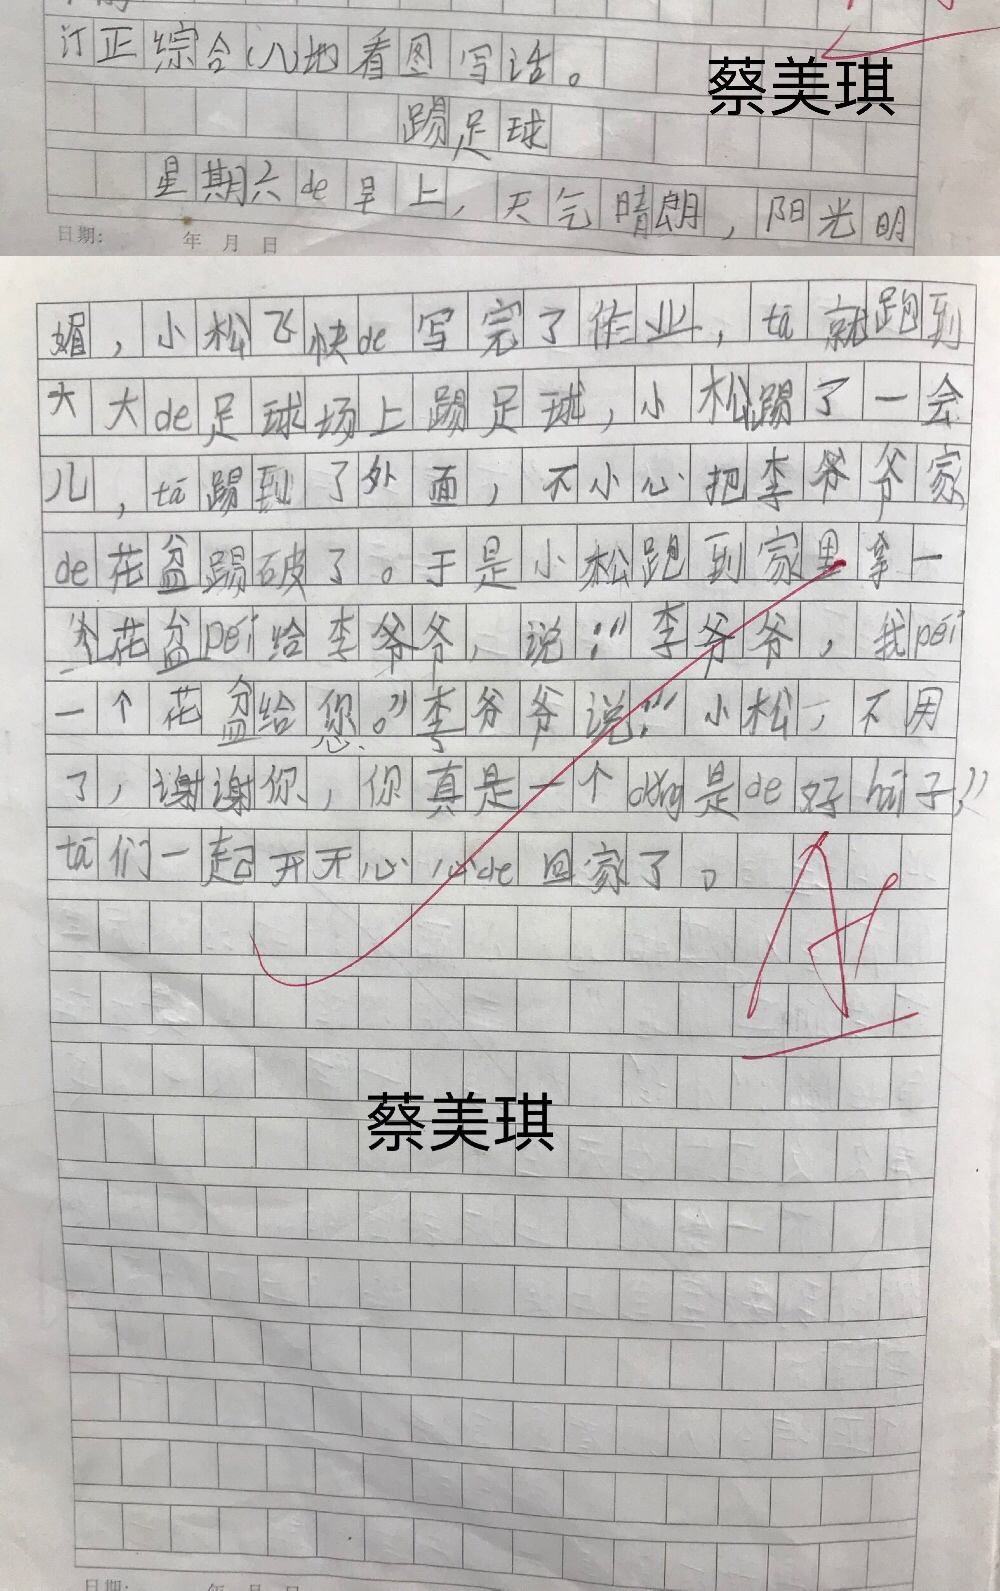 订正综合(八)地看图写话。
蔡美琪
踢足球
星期六de早上，天气晴朗，阳光明
日期: 年 月 日
媚，小松飞快de写完了作业，tā就跑到
大大de足球场上踢足球，小松踢了一会
儿，tā踢到了外面，不小心把李爷爷家
de花盆踢破了。于是小松跑到家里拿一
个花盆péi给李爷爷，说：“李爷爷，我péi
一个花盆给您。”李爷爷说：“小松，不用
了，谢谢你，你真是一个dǒng是de好hái子，”
tā们一起开开心心de回家了。
A+
蔡美琪
日期: 年 月 日